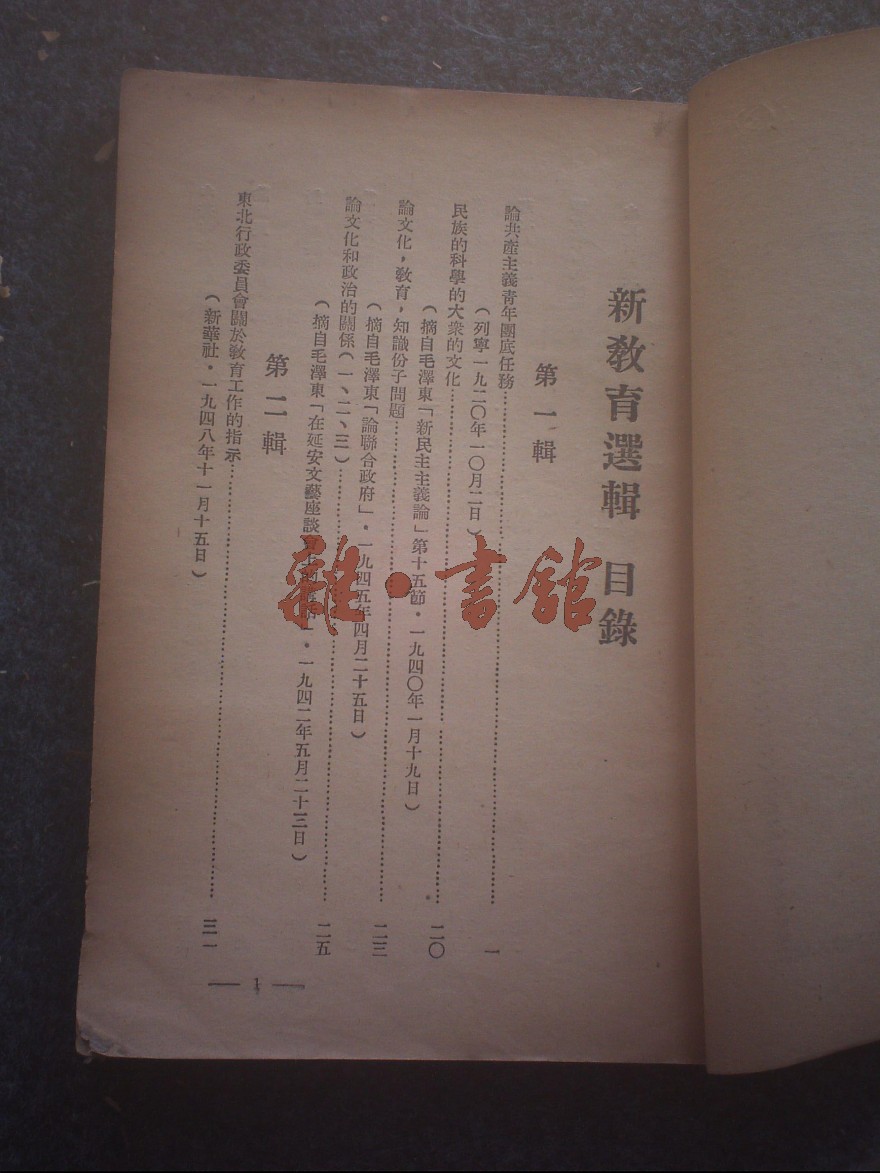 新教育選輯 目錄
第一輯
論共產主義青年團底任務……一
(列寧一九二〇年一〇月二日)
民族的科學的大衆的文化……二〇
(摘自毛澤東「新民主主義論」第十五節·一九四〇年一月十九日)
論文化,教育,知識份子問題……二三
(摘自毛澤東「論聯合政府」·一九四五年四月二十五日)
論文化和政治的關係(一、二、三)……二五
(摘自毛澤東「在延安文藝座談 」·一九四二年五月二十三日)
第二輯
東北行政委員會關於教育工作的指示……三一
(新華社·一九四八年十一月十五日)
— 1 —
雜·書館